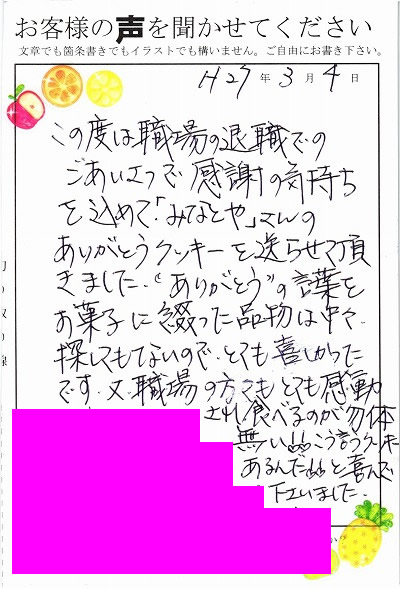 お客様の声を聞かせてください
文章でも箇条書きでもイラストでも構いません。ご自由にお書き下さい。
H27年3月4日
この度は職場の退職での
ごあいさつで感謝の気持ち
を込めて「みなとや」さんの
ありがとうクッキーを送らせて頂
きました。“ありがとう”の言葉を
お菓子に綴った品物は中々
探してもないので、とても喜しかった
です。又、職場の方々もとても感動
され食べるのが勿体
無い
こう言う
あるんだ
と喜んで
下さいました。